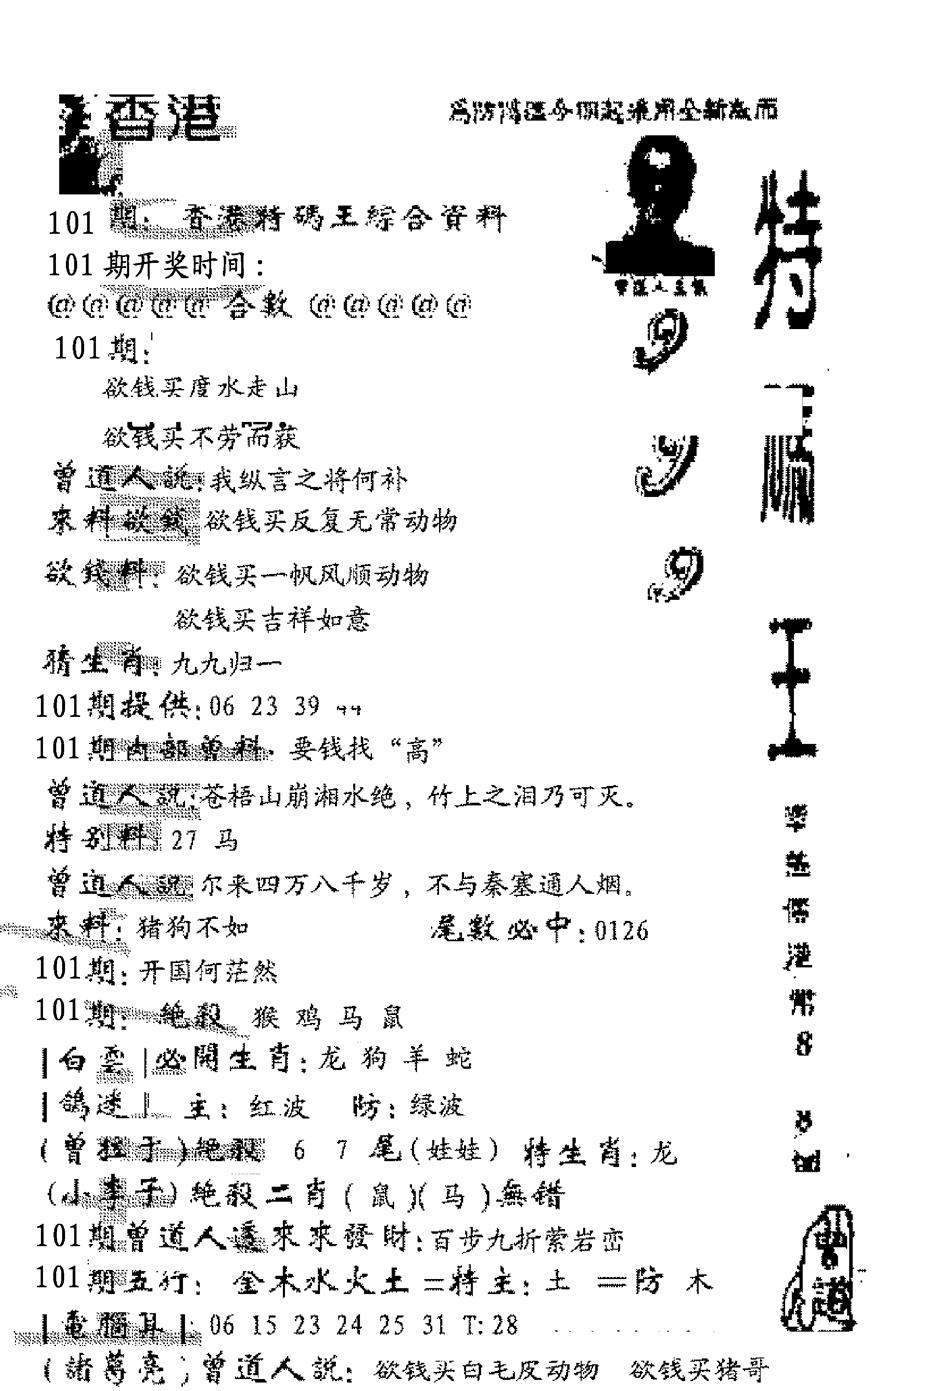 香港
101期: 香港特碼王綜合資料
101期开奖时间:
@@@@@合數@@@@@
101期:
欲钱买度水走山
欲钱买不劳而获
曾道人説:我纵言之将何补
來料欲錢 欲钱买反复无常动物
欲錢料: 欲钱买一帆风顺动物
欲钱买吉祥如意
猜生肖:九九归一
101期提供:06 23 39 44
101期内部曾料: 要钱找“高”
曾道人説:苍梧山崩湘水绝,竹上之泪乃可灭。
特别料:27 马
曾道人説:尔来四万八千岁,不与秦塞通人烟。
來料:猪狗不如 尾數必中:0126
101期:开国何茫然
101期: 絶殺 猴 鸡 马 鼠
|白雲|必開生肖:龙 狗 羊 蛇
|鴿迷| 主:红波 防:绿波
絶殺 6 7 尾(娃娃) 特生肖:龙
(小李子)絶殺二肖(鼠)(马)無错
101期曾道人透來來發財:百步九折萦岩峦
101期五行: 金木水火土=特主:土 =防 木
|電腦耳|:06 15 23 24 25 31 T:28
(諸葛亮)曾道人説: 欲钱买白毛皮动物 欲钱买猪哥
9
9
9
特
王
曾道